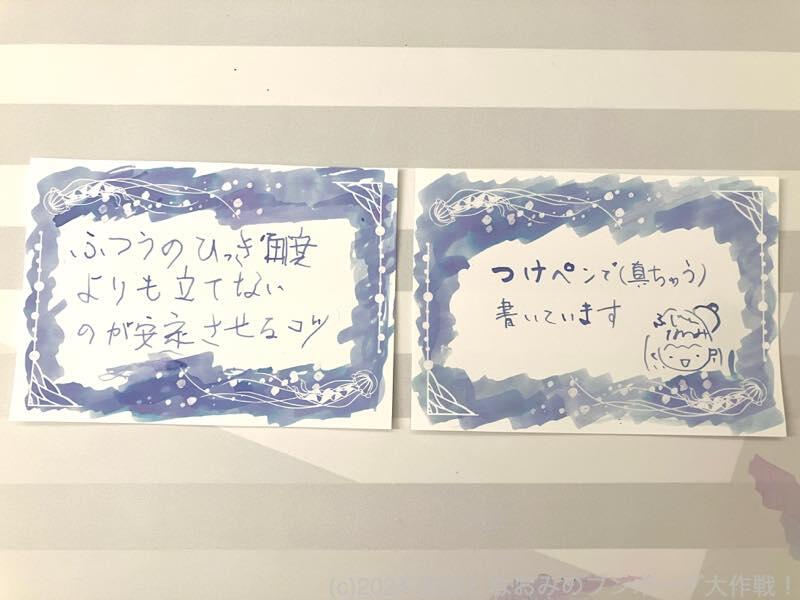 ふつうのひっき角度
よりも立てない
のが安定させるコツ
つけペンで(真ちゅう)
書いています
ふじい
なおみ
大作戦!